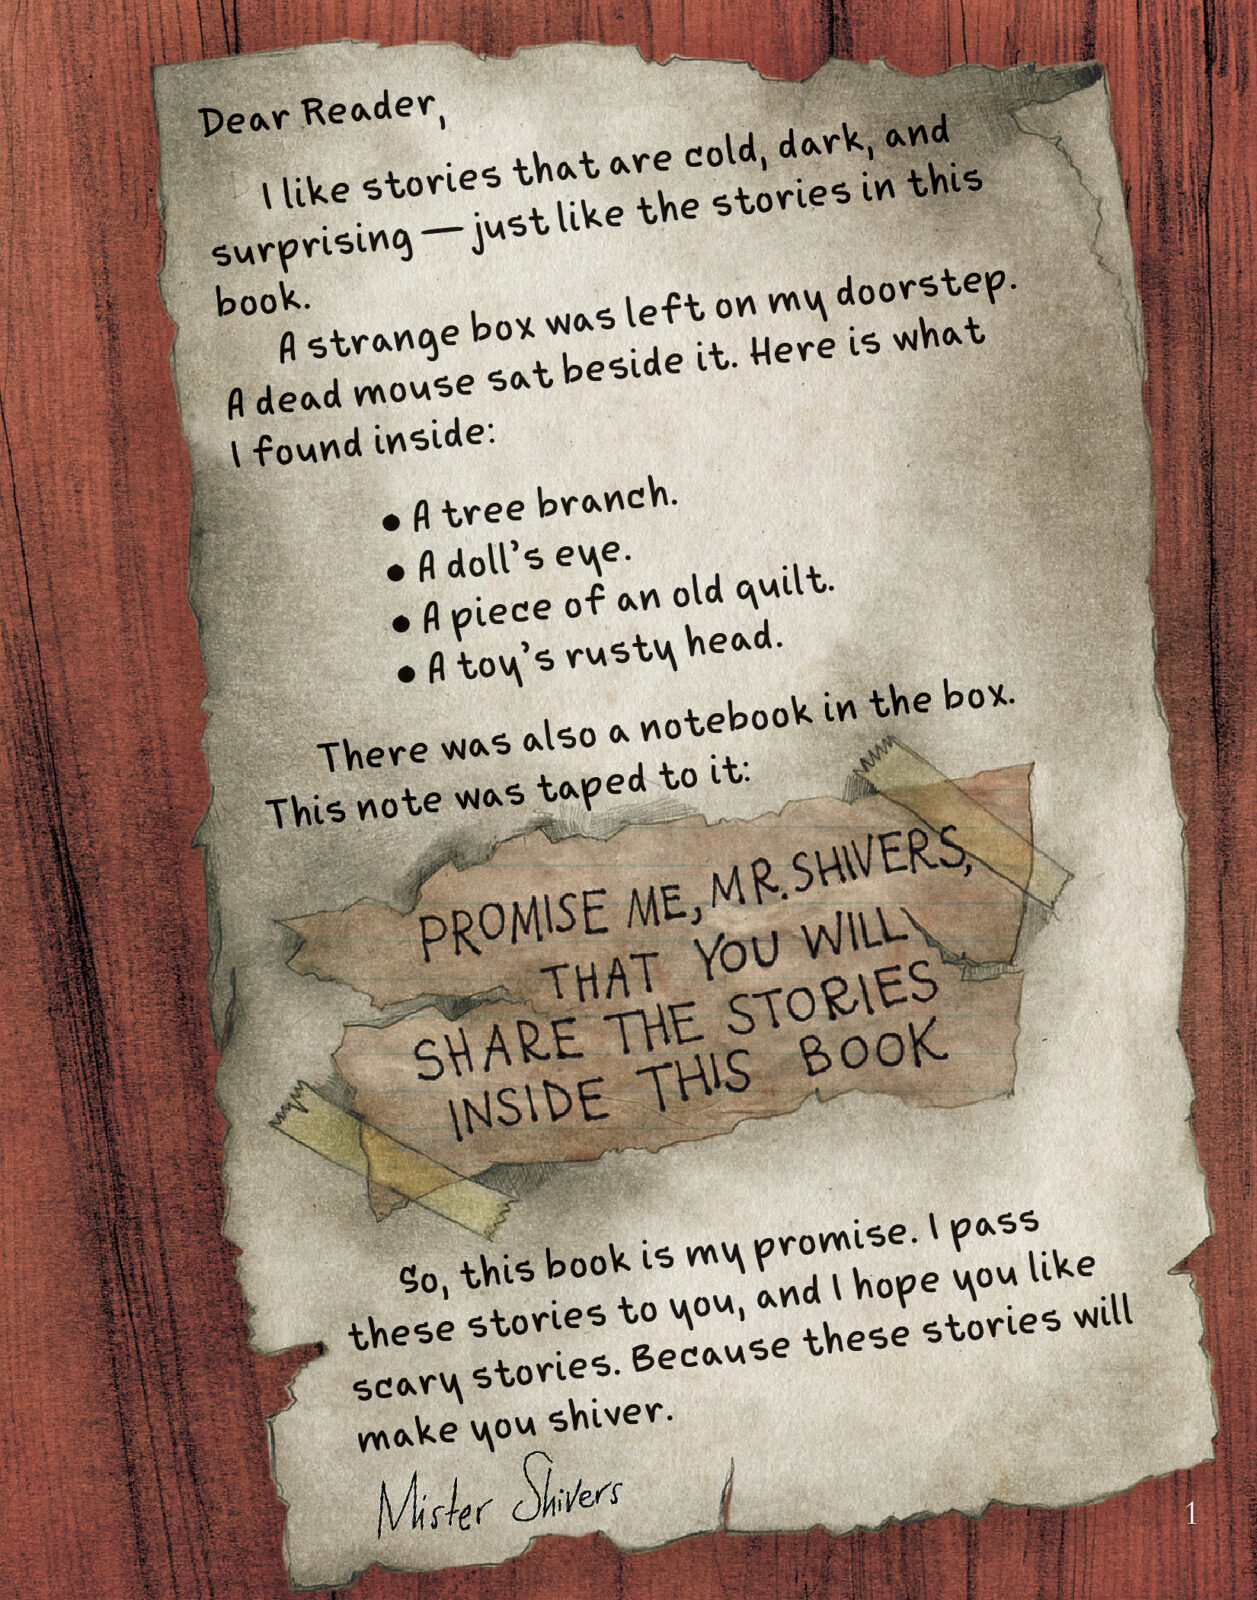 Dear Reader,
I like stories that are cold, dark, and
surprising — just like the stories in this
book.
A strange box was left on my doorstep.
A dead mouse sat beside it. Here is what
I found inside:
● A tree branch.
● A doll's eye.
● A piece of an old quilt.
● A toy's rusty head.
There was also a notebook in the box.
This note was taped to it:
PROMISE ME, MR. SHIVERS,
THAT YOU WILL
SHARE THE STORIES
INSIDE THIS BOOK
So, this book is my promise. I pass
these stories to you, and I hope you like
scary stories. Because these stories will
make you shiver.
Mister Shivers
1